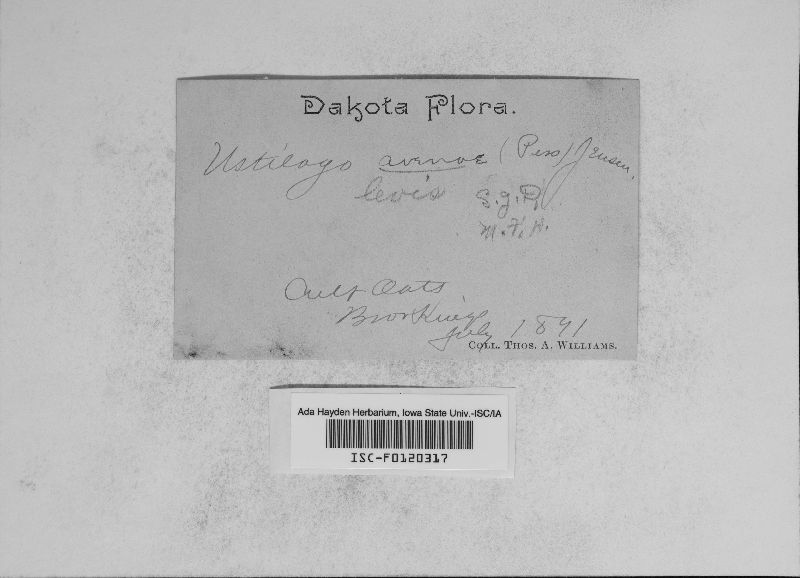 Dakota Flora.
Ustilago avenae (Pers) Jensen.
levis S.g.P.
M.F.H.
Cult Oats
Brookings
July 1891
COLL. THOS. A. WILLIAMS.
Ada Hayden Herbarium, Iowa State Univ.-ISC/IA
ISC-F0120317